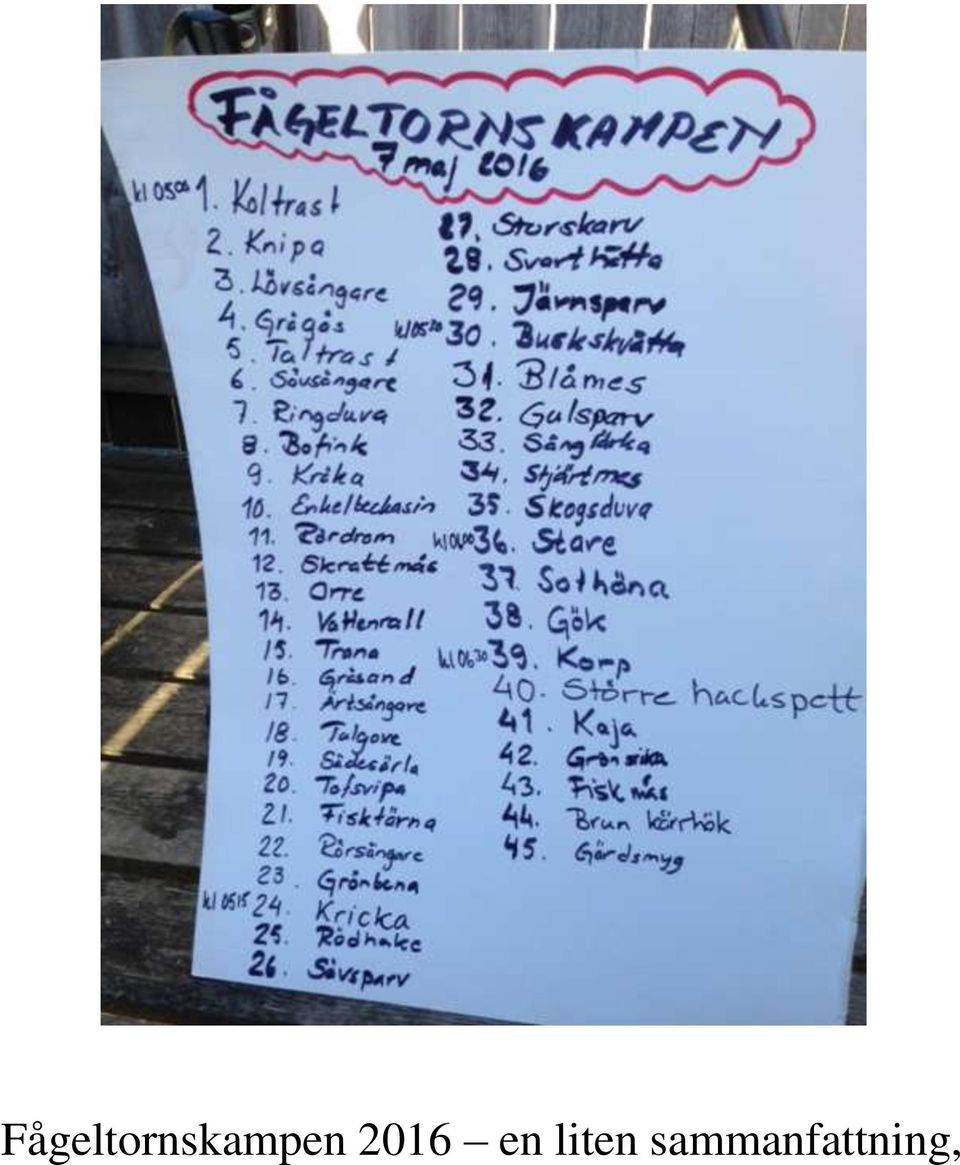 FÅGELTORNSKAMPEN
7 maj 2016
kl 05 00 1. Koltrast
2. Knipa
3. Lövsångare
4. Grågås
5. Taltrast
6. Sävsångare
7. Ringduva
8. Bofink
9. Kråka
10. Enkelbeckasin
11. Rördrom
12. Skrattmås
13. Orre
14. Vattenrall
15. Trana
16. Gräsand
17. Ärtsångare
18. Talgoxe
19. Sädesärla
20. Tofsvipa
21. Fisktärna
22. Rörsångare
23. Grönbena
kl 05 15 24. Kricka
25. Rödhake
26. Sävsparv
27. Storskarv
28. Svarthätta
29. Järnsparv
kl 05 30 30. Buskskvätta
31. Blåmes
32. Gulsparv
33. Sånglärka
34. Stjärtmes
35. Skogsduva
kl 06 00 36. Stare
37. Sothöna
38. Gök
kl 06 30 39. Korp
40. Större hackspett
41. Kaja
42. Grönsiska
43. Fiskmås
44. Brun kärrhök
45. Gärdsmyg
Fågeltornskampen 2016 – en liten sammanfattning,